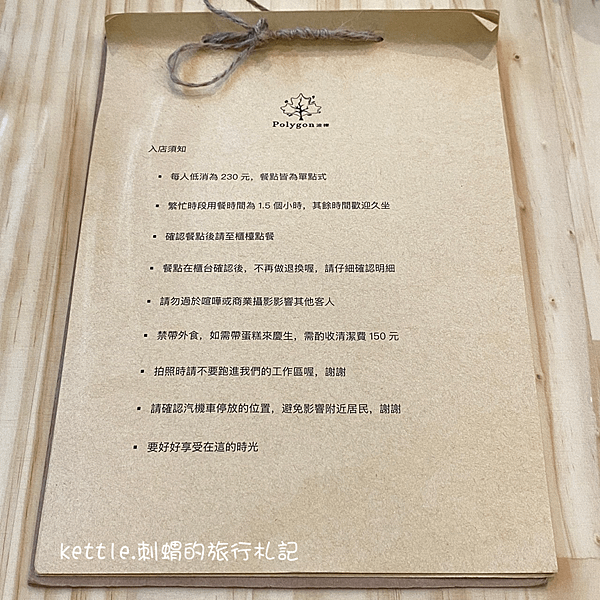 Polygon 波樺
入店須知
▪ 每人低消為 230 元，餐點皆為單點式
▪ 繁忙時段用餐時間為 1.5 個小時，其餘時間歡迎久坐
▪ 確認餐點後請至櫃檯點餐
▪ 餐點在櫃台確認後，不再做退換喔，請仔細確認明細
▪ 請勿過於喧嘩或商業攝影影響其他客人
▪ 禁帶外食，如需帶蛋糕來慶生，需酌收清潔費 150 元
▪ 拍照時請不要跑進我們的工作區喔，謝謝
▪ 請確認汽機車停放的位置，避免影響附近居民，謝謝
▪ 要好好享受在這的時光
kettle.刺蝟的旅行札記